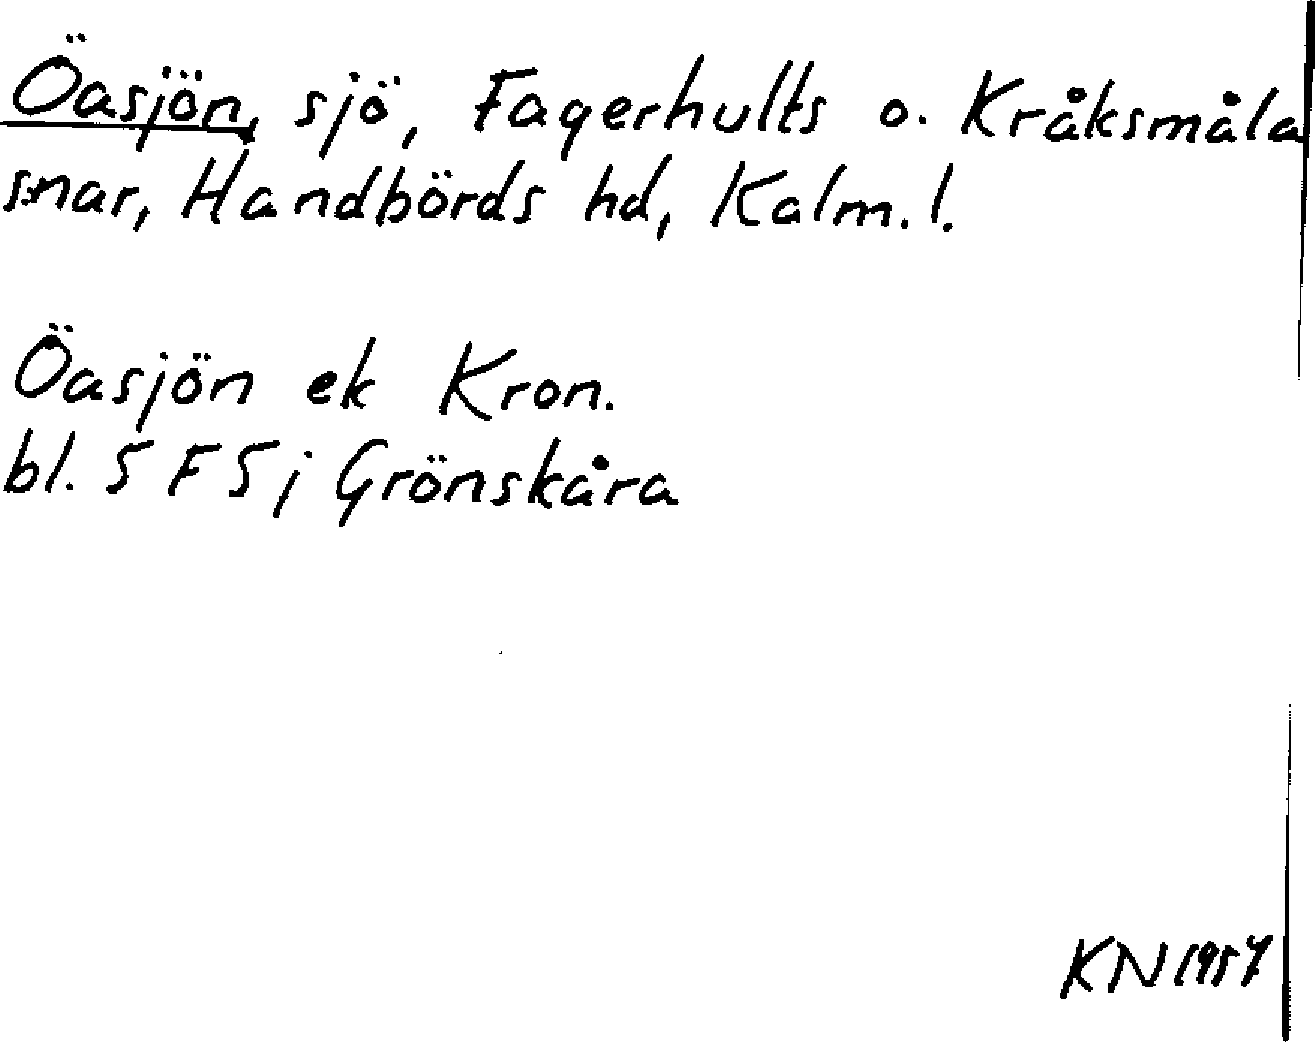 Öasjön, sjö, Fagerhults o. Kråksmåla
snar, Handbörds hd, Kalm. l.
Öasjön ek Kron.
bl. 5 F 5 j Grönskåra
KN 1957